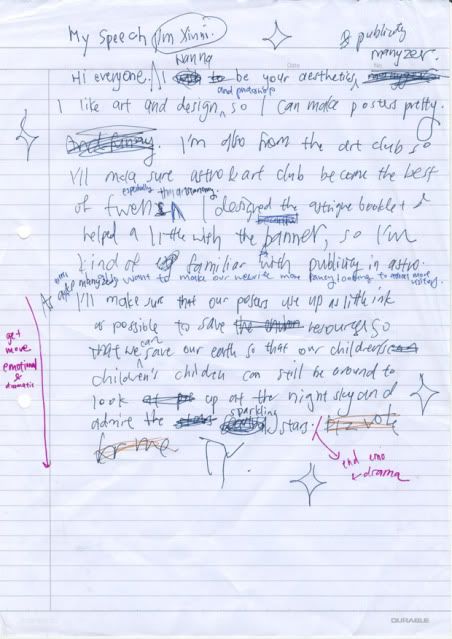 My Speech I'm Xinni.
& publicity
manyzer.
Date
No
wanna
Hi everyone. I be your aesthetics
and photoshop
I like art and design, so I can make posters pretty.
and funny. I'm also from the art club so
I'll make sure astro & art club become the best
especially
of I designed the astrique booklet &
helped a little with the banner, so I'm
kind of familiar with publicity in astro.
want to make our website more fancy looking to attract more
visitors.
I'll make sure that our posters use up as little ink
as possible to save resources so
can
that we save our earth so that our children's
children's children can still be around to
look up at the night sky and
sparkling
admire the stars. plz vote
for me
get
more
emotional
&
dramatic
end emo
drama
DURABLE